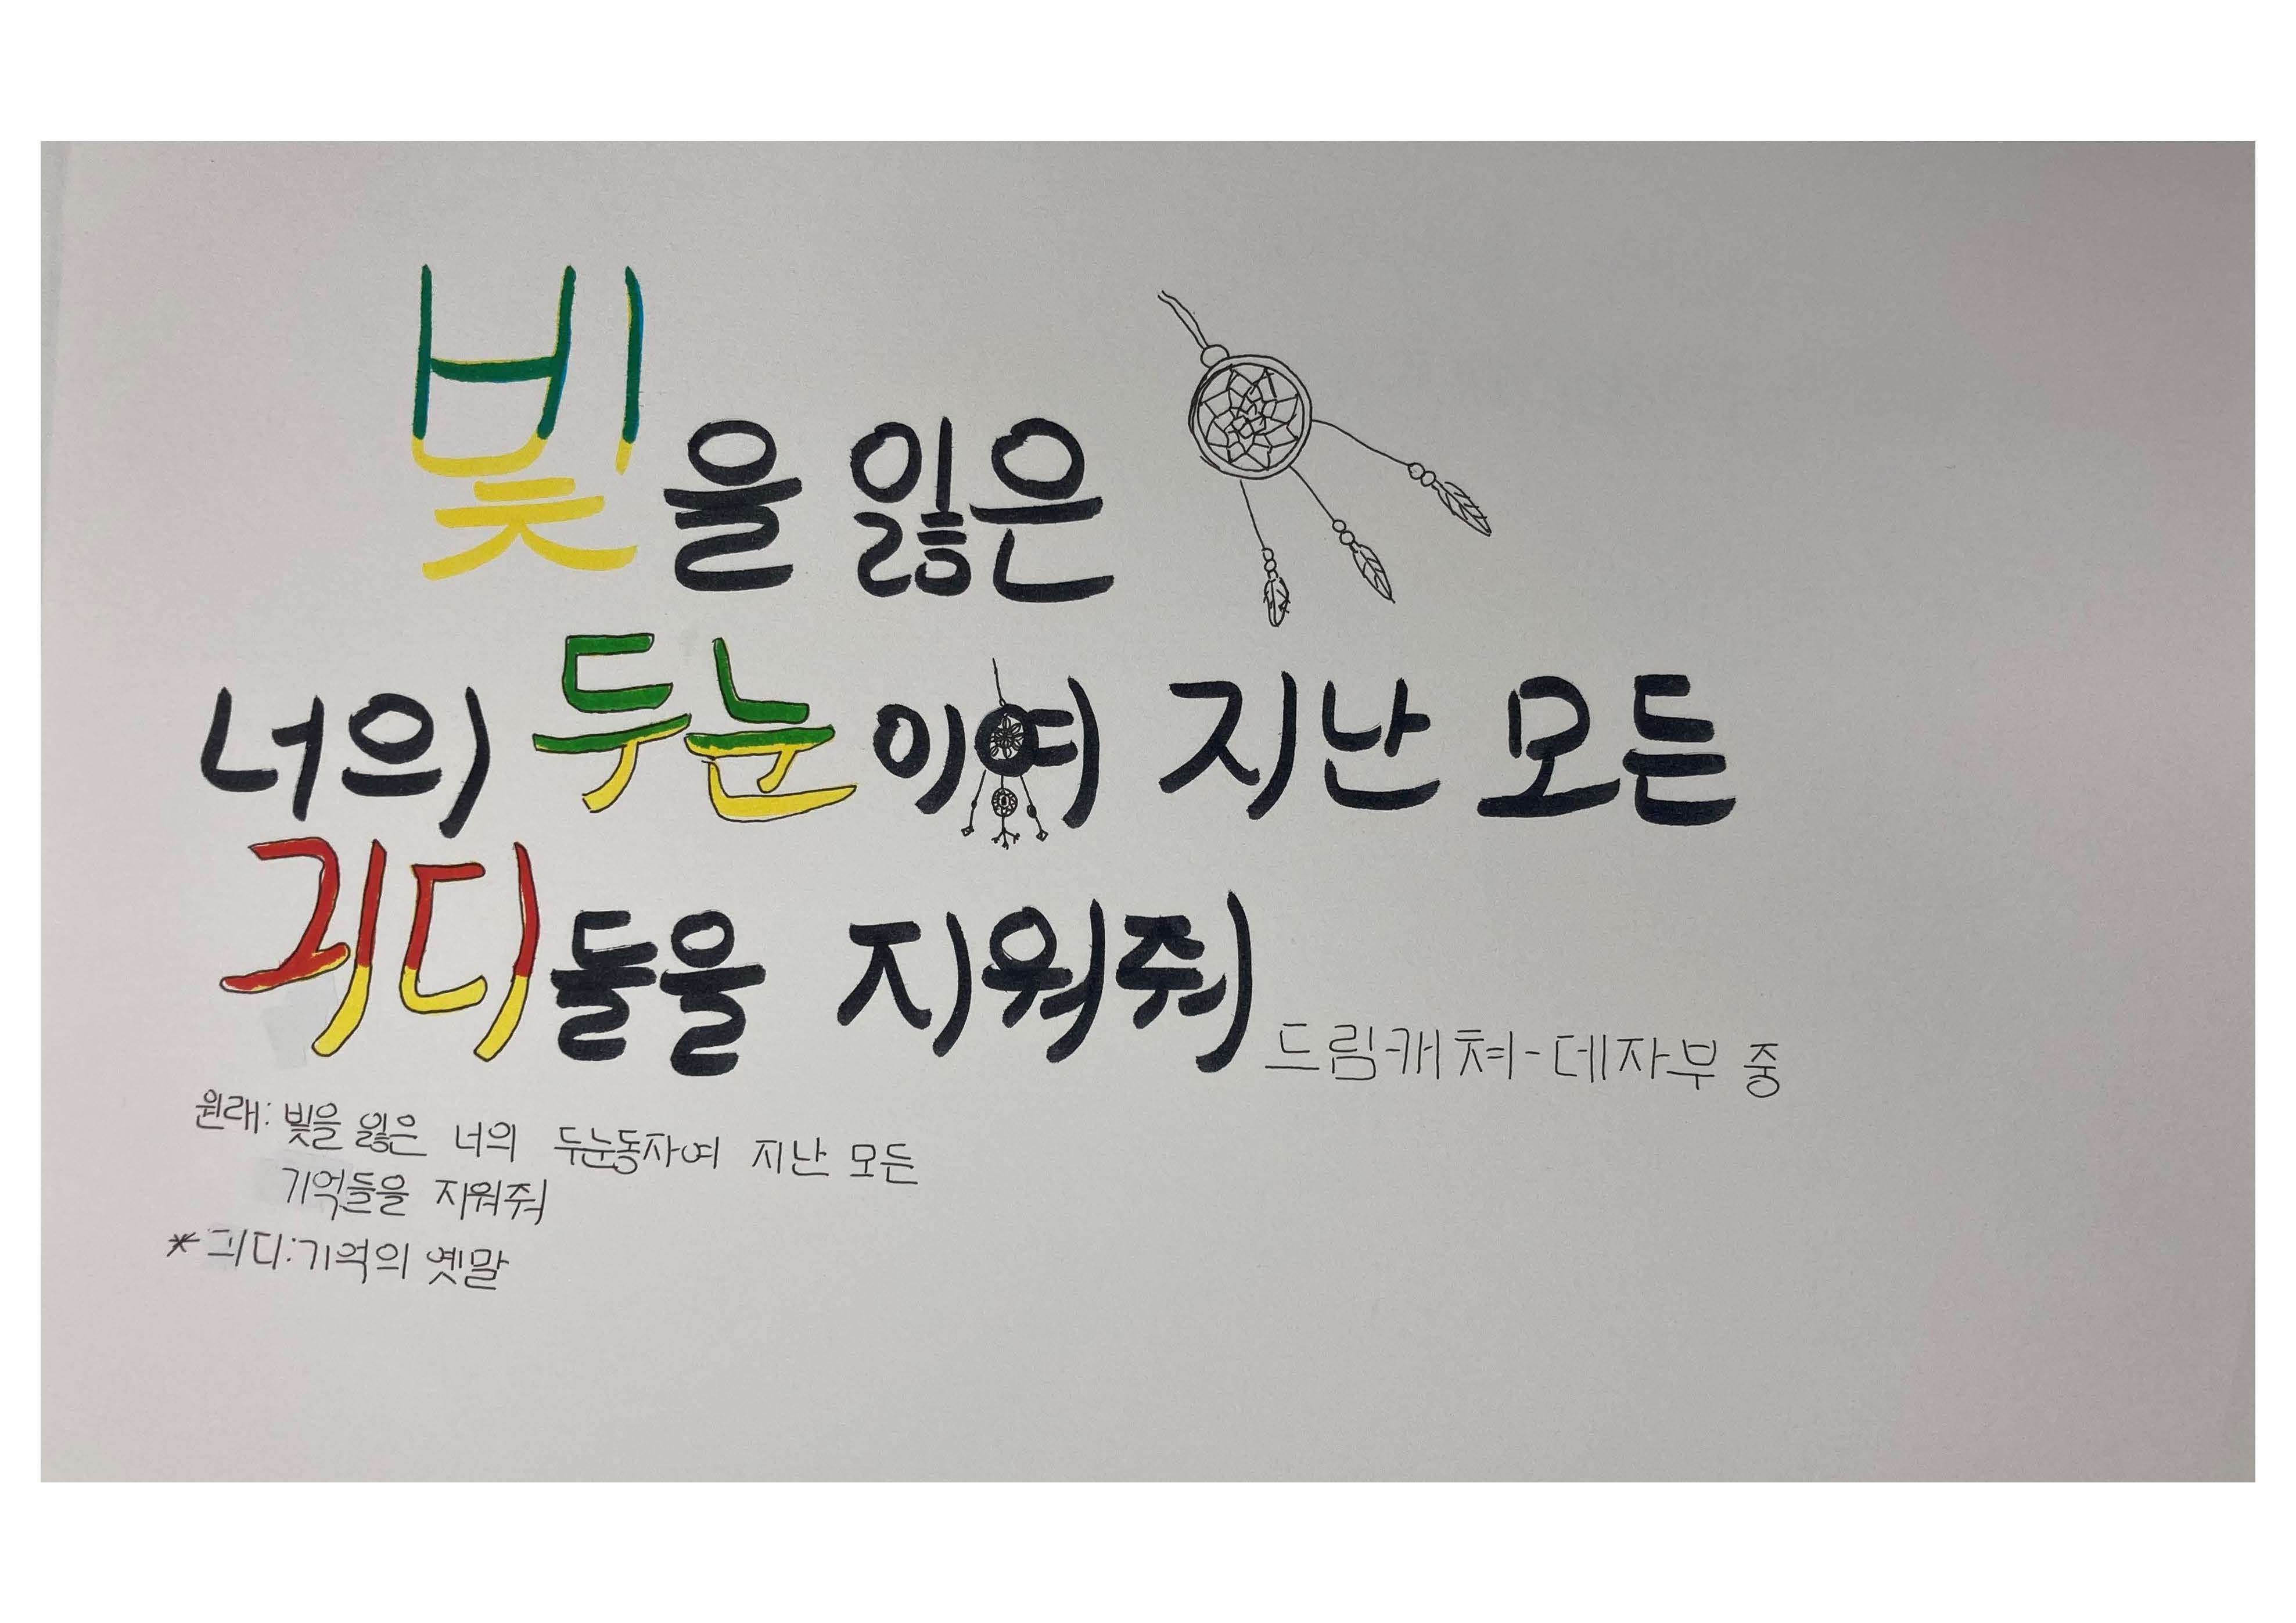 빛을 잃은
너의 두눈이여 지난 모든
긔디들을 지워줘
드림캐쳐-데자부 중
원래: 빛을 잃은 너의 두눈동자여 지난 모든
기억들을 지워줘
*긔디:기억의 옛말